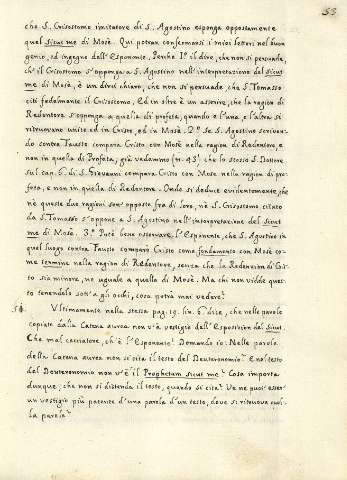 53
che S. Grisostomo imitatore di S. Agostino esponga oppostamente
quel Sicut me di Mosè. Qui potran confermarsi i miei lettori nel buon
genio, ed ingegno dell'Esponente. Perché 1º il dire, che non si persuade,
ch'il Grisostomo s'opponga a S. Agostino nell'interpretazione del sicut
me di Mosè, è un dirci chiaro, che non si persuade che S. Tomaso
citi fedelmente il Grisostomo, Ed in oltre è un asserire, che la ragion di
Redentore s'opponga a quella di profeta, quando e l'una, e l'altra si
ritrovano unite ed in Cristo, ed in Mosè. 2º Se S. Agostino scriven-
do contra Fausto compara Cristo con Mosè nella ragion di Redentore, e
non in quella di Profeta, già vedemmo (n. 45) che lo stesso S. Dottore
sul cap. 6. di S. Giovanni compara Cristo con Mosè nella ragion di pro-
feta, e non in quella di Redentore. Onde si deduce evidentemente, che
nè queste due ragioni son' opposte fra di loro, nè S. Grisostomo citato
da S. Tomasso s'oppone a S. Agostino nell'interpretazione del sicut
me di Mosè. 3º Potè bene osservare l'Esponente, che S. Agostino in
quel luogo contra Fausto comparò Cristo come fondamento con Mosè co-
me termine nella ragion di Redentore, senza che la Redenzion di Cri-
sto sia minore, nè uguale a quella di Mosè. Ma chi non vidde ques-
to tenendolo sott'a gli occhi, cosa potrà mai vedere?
Ultimamente nella stessa pag. 19. lin. 6. dice, che nelle parole
copiate dalla Catena aurea non v'è vestigio dell'Esposizion del Sicut.
Che mal cacciatore, ch'è l'Esponente! Domando io: Nelle parole
della Catena aurea non si cita il testo del Deuteronomio? E nel testo
del Deuteronomio non v'è il Prophetam sicut me? Cosa importa
dunque, che non si distenda il testo, quando si cita? Ve ne puol' esser
un vestigio più patente d'una parola d'un testo, dove si ritrova quel-
la parola?